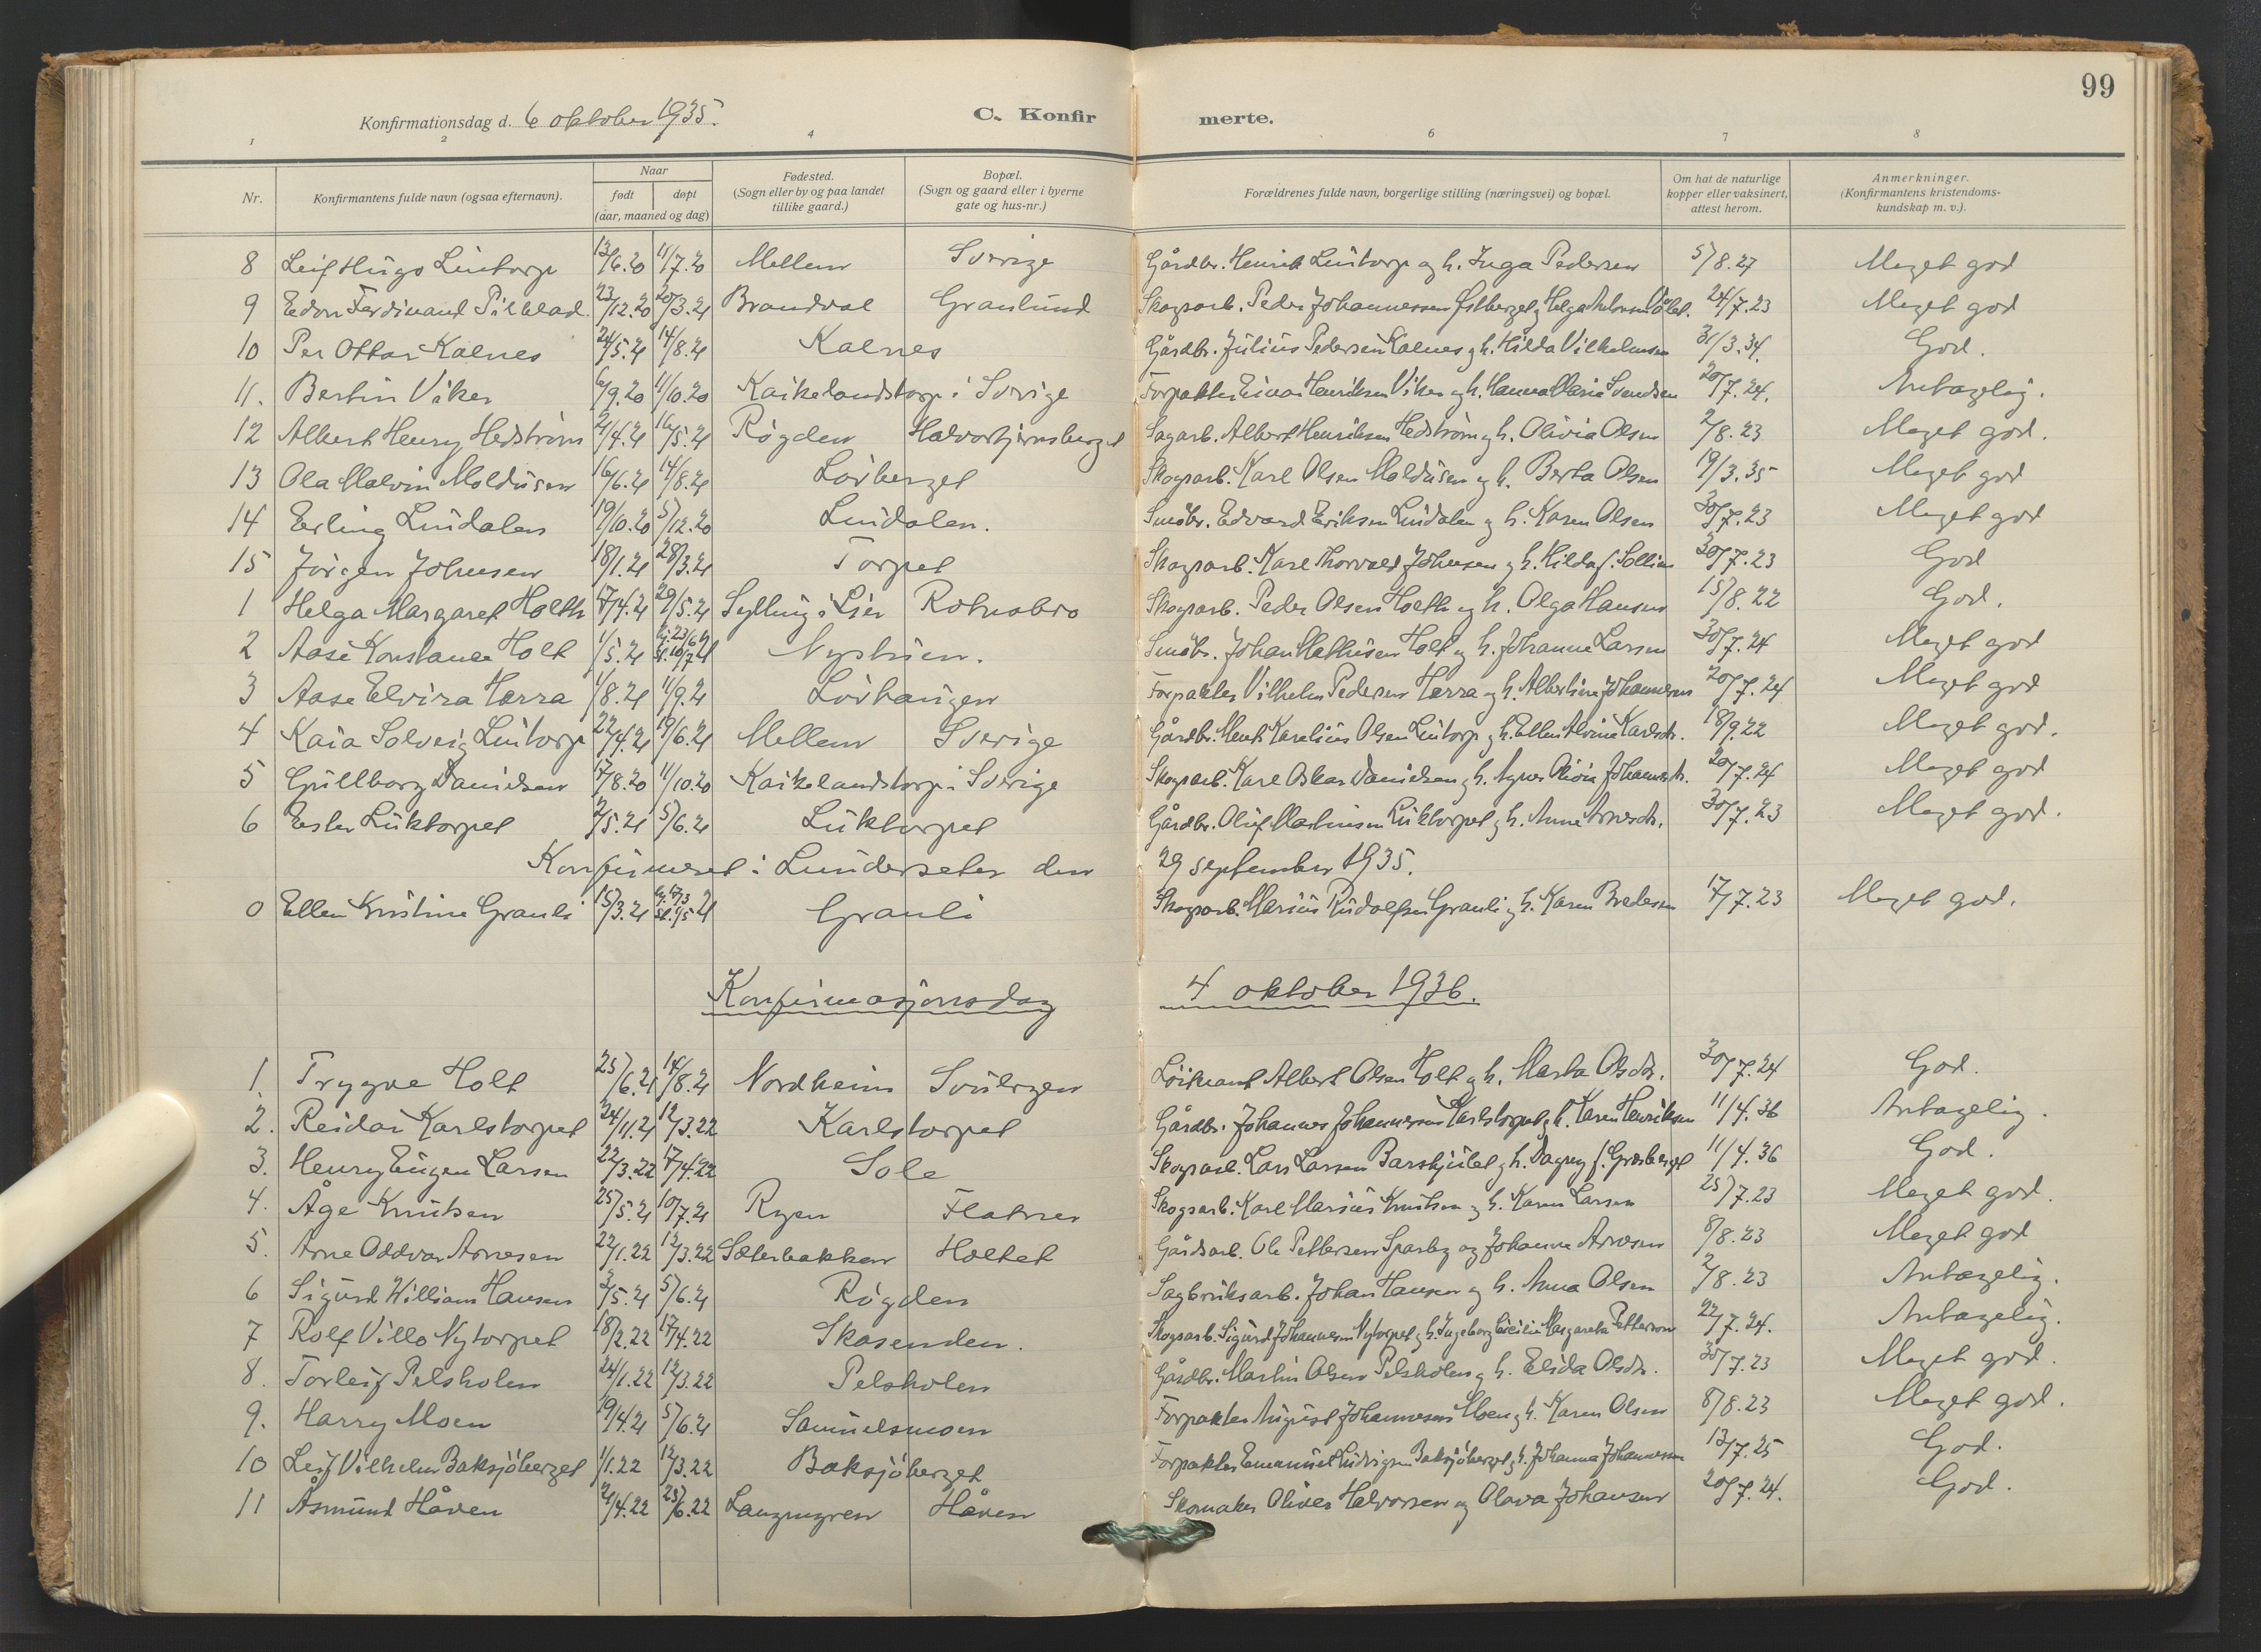 99
Konfirmationsdag d. 6 oktober 1935. C. Konfirmerte.
1 2 4 6 7 8
Nr. Konfirmantens fulde navn (ogsaa efternavn). Naar født døpt (aar, maaned og dag) Fødested. (Sogn eller by og paa landet tillike gaard.) Bopæl. (Sogn og gaard eller i byerne gate og hus-nr.) Forældrenes fulde navn, borgerlige stilling (næringsvei) og bopæl. Om hat de naturlige kopper eller vaksinert, attest herom. Anmerkninger. (Konfirmantens kristendoms-kundskap m. v.).
8 Leif Hugo Lintorp 13/6.20 11/7.20 Mellem Sverige Gårdbr. Henrik Lintorp og h. Inga Pedersen 5/8.27 Meget god
9 Edon Ferdinant Pilblad 23/12.20 20/3.21 Brandval Granlund Skogsarb. Peder Johannessen Østberget og Helga 24/7.23 Meget god
10 Per Ottar Kalnes 24/5.21 14/8.21 Kalnes Gårdbr. Julius Pedersen Kalnes og h. Hilda Vilhelmsen 31/3.34. God.
11. Bertin Viker 6/9.20 11/10.20 Kaikelandstorp i Sverige Forpakter Einar Henriksen Viker og h. Hanna Maria Svendsen 20/7.24. Antagelig.
12 Albert Henry Hedstrøm 2/4.21 16/5.21 Røgden Halvortjernsberget Sagarb. Albert Henriksen Hedstrøm og h. Olivia Olsen 2/8.23 Meget god.
13 Ola Malvin Moldusen 16/6.21 14/8.21 Løvberget Skogsarb. Karl Olsen Moldusen og h. Berta Olsen 19/3.35 Meget god
14 Erling Lindalen 19/10.20 5/12.20 Lindalen. Småbr. Edvard Eriksen Lindalen og h. Karen Olsen 30/7.23 Meget god
15 Jørgen Johnsen 18/1.21 28/3.21 Torpet Skogsarb. Karl Thorvald Johnsen og h. Hilda f. Sollien 30/7.23 God
1 Helga Margaret Holth 17/4.21 29/5.21 Sylling i Lier Rotnabro Skogsarb. Peder Olsen Holth og h. Olga Hansen 15/8.22 God.
2 Aase Konstance Holt 1/5.21 hj. 23/6 21 st. 10/7 21 Nystuen. Småbr. Johan Mathisen Holt og h. Johanne Larsen 30/7.24 Meget god
3 Aase Elvira Harra 1/8.21 11/9.21 Løvhaugen Forpakter Vilhelm Pedersen Harra og h. Albertine Johannesen 20/7.24 Meget god
4 Kaia Solveig Lintorp 22/4.21 19/6.21 Mellem Sverige Gårdbr. Karelius Olsen Lintorp og h. Ellen Alvine Karlsdtr. 18/9.22 Meget god.
5 Gullborg Danielsen 17/8.20 11/10.20 Kaikelandstorp i Sverige Skogsarb. Karl Oskar Danielsen og h. Agnes Olivia Johannesdtr. 20/7.24 Meget god
6 Ester Luktorpet 2/5.21 5/6.21 Luktorpet Gårdbr. Oluf Martinsen Luktorpet og h. Anne Arnesdtr. 30/7.23 Meget god.
Konfirmeret i Lundersæter den 29 september 1935.
0 Ellen Kristine Granli 15/3.21 hj. 17/3 st. 1/5 21 Granli Skogsarb. Marius Rudolfsen Granli og h. Karen Bredesen 17/7.23 Meget god.
Konfirmasjonsdag 4 oktober 1936.
1. Trygve Holt 25/6.21 14/8.21 Nordheim Svulrya Løitnant Albert Olsen Holt og h. Marta Olsdtr. 30/7.24 God.
2. Reidar Karlstorpet 24/11.21 12/3.22 Karlstorpet Gårdbr. Johannes Johannesen Karlstorpet og h. Karen Henriksen 11/4.36 Antagelig.
3. Henry Eugen Larsen 22/3.22 17/4.22 Sole Skogsarb. Lars Larsen Barskjulet og h. Dagny f. Græsberget 11/4.36 God.
4. Åge Knutsen 25/5.21 10/7.21 Ryen Flatner Skogsarb. Karl Marius Knutsen og h. Karen Larsen 25/7.23 Meget god.
5. Arne Oddvar Arnesen 22/1.22 12/3.22 Sæterbakken Holtet Gårdsarb. Ole Pettersen Sparby og Johanne Arnesen 8/8.23 Meget god
6 Sigurd William Hansen 3/5.21 5/6.21 Røgden Sagbruksarb. Johan Hansen og h. Anna Olsen 2/8.23 Antagelig.
7 Rolf Villo Nytorpet 18/2.22 17/4.22 Skasenden. Skogsarb. Sigurd Johannesen Nytorpet og h. Ingeborg Cecilie Margareta Petterson 22/7.24. Antagelig.
8. Torleif Pelsholen 24/1.22 12/3.22 Pelsholen Gårdbr. Martin Olsen Pelsholen og h. Elida Olsdtr. 30/7.23 Meget god.
9. Harry Moen 19/4.21 5/6.21 Samuelsmoen Forpakter August Johannesen Moen og h. Karen Olsen 8/8.23 Meget god.
10 Leif Vilhelm Baksjøberget 1/1.22 12/3.22 Baksjøberget Forpakter Emanuel Ludvigsen Baksjøberget og h. Johanna Johannesen 13/7.25 God.
11 Åsmund Håven 2/4.22 25/6.22 Langmyren Håven Skomaker Oliver Halvorsen og Olava Johansen 20/7.24. God.